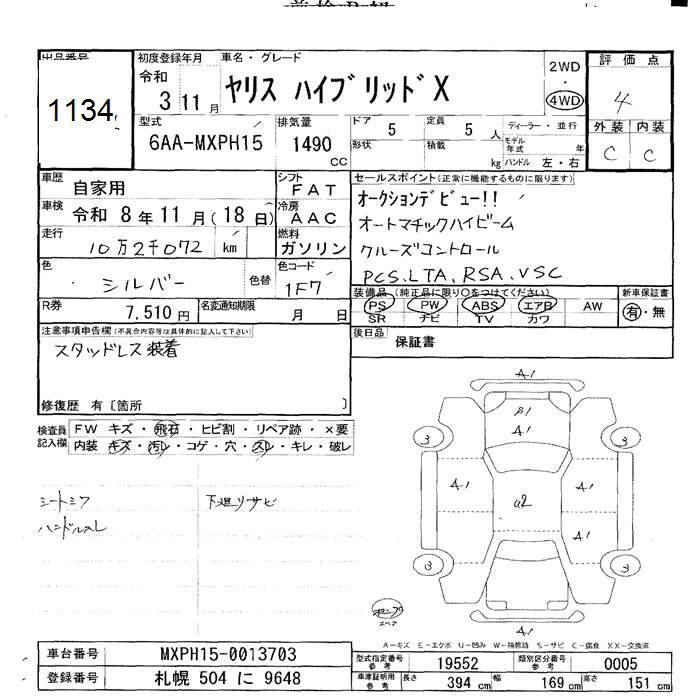 出品番号
1134
初度登録年月
令和
3 11月
車名・グレード
ヤリス ハイブリッド X
2WD
・
4WD
評価点
4
外装 内装
C C
型式
6AA-MXPH15
排気量
1490
CC
ドア 5
形状
定員 5 人
積載 kg
ディーラー・並行
モデル年式 年
ハンドル 左・右
車歴 自家用
車検 令和 8年11月(18日)
走行 10万2千072 km
色 シルバー 色替
シフト FAT
冷房 AAC
燃料 ガソリン
色コード 1F7
セールスポイント(正常に機能するものに限ります)
オークションデビュー!!
オートマチックハイビーム
クルーズコントロール
PCS. LTA. RSA. VSC
R券 7,510円
名変通知期限 月 日
装備品 (純正品に限り○をつけてください)
PS PW ABS エアB AW
SR ナビ TV カワ
新車保証書
有・無
後日品 保証書
注意事項申告欄(不具合内容等は具体的に記入して下さい)
スタッドレス装着
修復歴 有〔箇所 〕
検査員記入欄
FW キズ・飛石・ヒビ割・リペア跡・×要
内装 キズ・汚レ・コゲ・穴・スレ・キレ・破レ
シートシワ
ハンドルスレ
下廻リサビ
A1
A1
3 3
A1 A1
U2
A1
3 3
スペア
A1
A-キズ E-エクボ U-凹み W-補修跡 S-サビ C-腐食 XX-交換済
車台番号 MXPH15-0013703
登録番号 札幌 504 に 9648
型式指定番号 参考 19552
類別区分番号 参考 0005
車庫証明用 参考 長さ 394 cm 幅 169 cm 高さ 151 cm